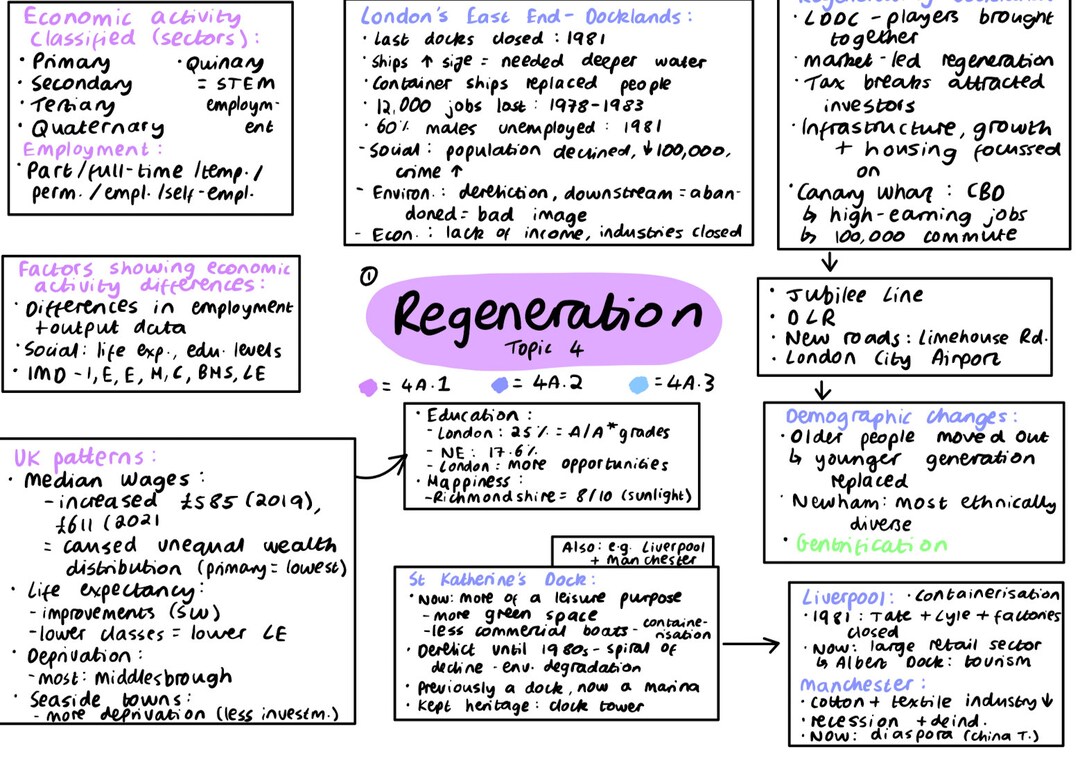 Economic activity
classified (sectors):
· Primary
· Secondary
· Tertiary
· Quaternary
· Quinary
= STEM
employm-
ent
Employment:
· Part/full-time/temp./
perm./empl./self-empl.
London's East End- Docklands:
· Last docks closed: 1981
· Ships ↑ size = needed deeper water
· Container ships replaced people
· 12,000 jobs lost: 1978-1983
· 60% males unemployed: 1981
- Social: population declined, ↓100,000,
crime ↑
- Environ.: dereliction, downstream = aban-
doned = bad image
- Econ.: lack of income, industries closed
· LDDC - players brought
together
· market-led regeneration
· Tax breaks attracted
investors
· Infrastructure, growth
+ housing focussed
on
· Canary Wharf: CBD
↳ high-earning jobs
↳ 100,000 commute
Factors showing economic
activity differences:
· Differences in employment
+ output data
· Social: life exp., edu. levels
· IMD - I, E, E, H, C, BHS, LE
①
Regeneration
Topic 4
= 4A.1
= 4A.2
= 4A.3
· Jubilee Line
· DLR
· New roads: Limehouse Rd.
· London City Airport
Demographic changes:
· Older people moved out
↳ younger generation
replaced
· Newham: most ethnically
diverse
· Gentrification
UK patterns:
· Median wages:
- increased £585 (2019),
£611 (2021
= caused unequal wealth
distribution (primary = lowest)
· Life expectancy:
- improvements (SW)
- lower classes = lower LE
· Deprivation:
- most: Middlesbrough
· Seaside towns:
- more deprivation (less investm.)
· Education:
- London: 25% = A/A* grades
- NE: 17.6%
- London: more opportunities
· Happiness:
- Richmondshire = 8/10 (sunlight)
Also: e.g. Liverpool
+ Manchester
St Katherine's Dock:
· Now: more of a leisure purpose
- more green space
- less commercial boats - containe-
risation
· Derelict until 1980s - spiral of
decline - env. degradation
· Previously a dock, now a marina
· Kept heritage: clock tower
Liverpool: · Containerisation
· 1981: Tate + Lyle + factories
closed
· Now: large retail sector
↳ Albert Dock: tourism
Manchester:
· cotton + textile industry ↓
· recession + deind.
· Now: diaspora (China T.)